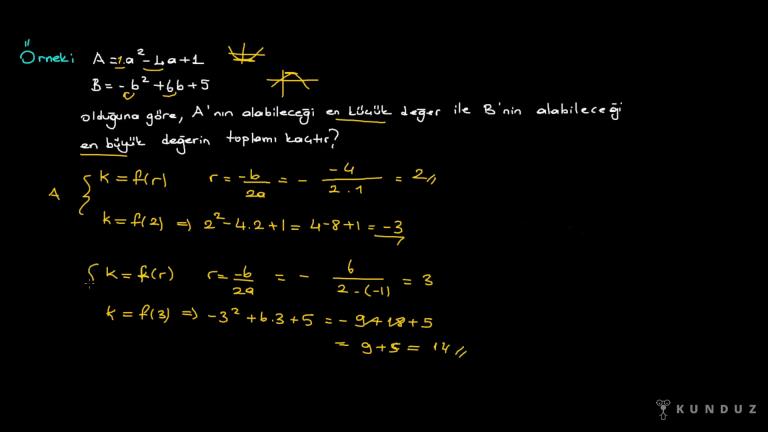 Örnek: A = 1.a² - 4a + 1
B = -b² + 6b + 5
olduğuna göre, A'nın alabileceği en küçük değer ile B'nin alabileceği
en büyük değerin toplamı kaçtır?
A { k = f(r) r = -b/2a = - -4/2.1 = 2 //
k = f(2) ⇒ 2² - 4.2 + 1 = 4 - 8 + 1 = -3
{ k = f(r) r = -b/2a = - 6/2-(-1) = 3
k = f(3) ⇒ -3² + 6.3 + 5 = -9 + 18 + 5
= 9 + 5 = 14 //
KUNDUZ